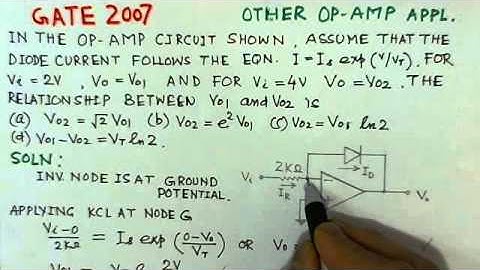 GATE 2007
OTHER OP-AMP APPL.
IN THE OP-AMP CIRCUIT SHOWN, ASSUME THAT THE
DIODE CURRENT FOLLOWS THE EQN. I=Is exp(V/VT). FOR
Vi = 2V, Vo = Vo1, AND FOR Vi = 4V Vo = Vo2. THE
RELATIONSHIP BETWEEN Vo1 and Vo2 is
(a) Vo2 = √2 Vo1 (b) Vo2 = e² Vo1 (c) Vo2 = Vo1 ln2
(d) Vo1 - Vo2 = VT ln2.
SOLN:
INV. NODE IS AT GROUND
POTENTIAL.
APPLYING KCL AT NODE G
Vi-0/2KΩ = Is exp(0-Vo/VT) OR Vo =
2V
2KΩ
Vi
IR
ID
Vo